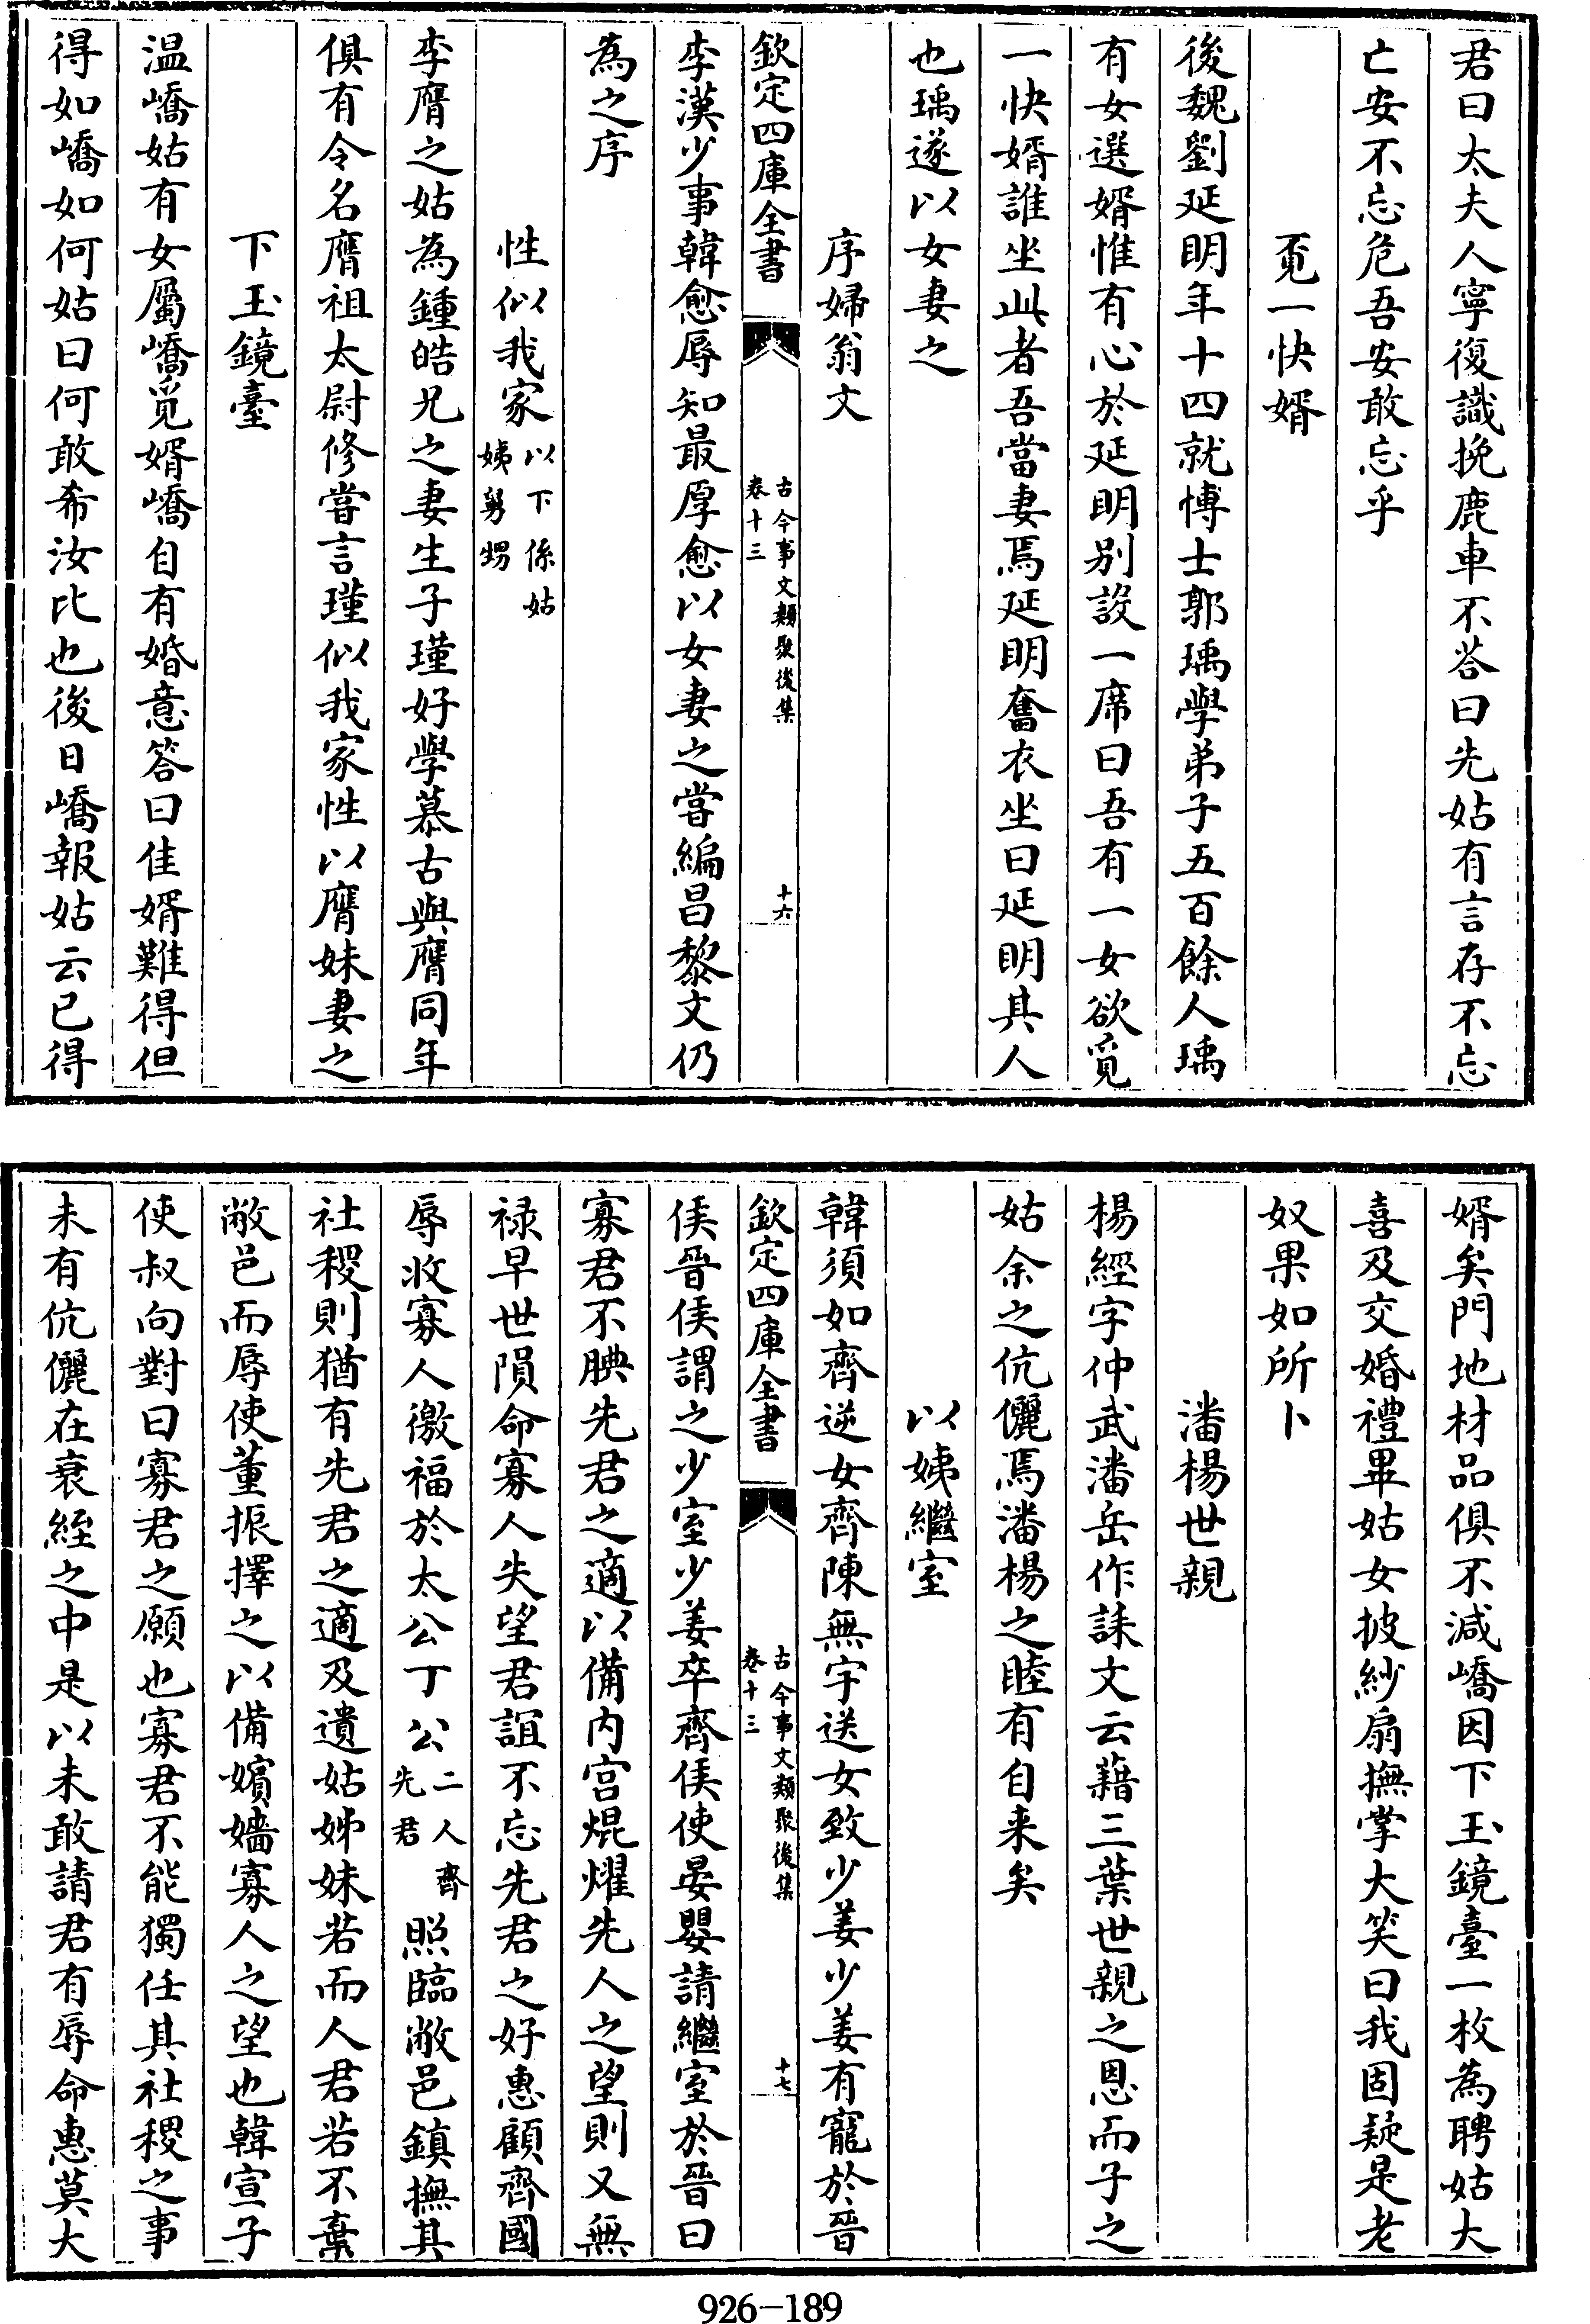 君曰太夫人寧復識挽鹿車不荅曰先姑有言存不忘
亡安不忘危吾安敢忘乎
覔一快婿
後魏劉延明年十四就博士郭瑀學弟子五百餘人瑀
有女選婿惟有心於延明别設一席曰吾有一女欲覓
一快婿誰坐此者吾當妻焉延明奮衣坐曰延明其人
也瑀遂以女妻之
序婦翁文
欽定四庫全書
古今事文類聚後集
卷十三
十六
李漢少事韓愈辱知最厚愈以女妻之嘗編昌黎文仍
為之序
性似我家以下係姑
姨舅甥
李膺之姑為鍾皓兄之妻生子瑾好學慕古與膺同年
俱有令名膺祖太尉修嘗言瑾似我家性以膺妹妻之
下玉鏡臺
温嶠姑有女屬嶠覓婿嶠自有婚意答曰佳婿難得但
得如嶠如何姑曰何敢希汝比也後日嶠報姑云已得
婿矣門地材品俱不減嶠因下玉鏡臺一枚為聘姑大
喜及交婚禮畢姑女披紗扇撫掌大笑曰我固疑是老
奴果如所卜
潘楊世親
楊經字仲武潘岳作誄文云藉三葉世親之恩而子之
姑余之伉儷焉潘楊之睦有自来矣
以姨繼室
韓須如齊逆女齊陳無宇送女致少姜少姜有寵於晉
欽定四庫全書
古今事文類聚後集
卷十三
十七
侯晉侯謂之少室少姜卒齊侯使晏嬰請繼室於晉曰
寡君不腆先君之適以備内宫焜燿先人之望則又無
禄早世隕命寡人失望君誼不忘先君之好惠顧齊國
辱收寡人徼福於太公丁公二人齊
先君照臨敝邑鎮撫其
社稷則猶有先君之適及遺姑姊妹若而人君若不棄
敝邑而辱使董振擇之以備嬪嬙寡人之望也韓宣子
使叔向對曰寡君之願也寡君不能獨任其社稷之事
未有伉儷在衰絰之中是以未敢請君有辱命惠莫大
926-189